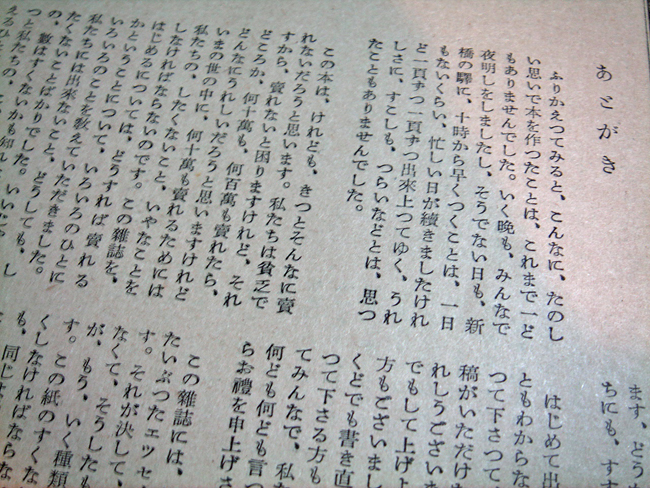 あとがき
ふりかえつてみると、こんなに、たのし
い思いで本を作つたことは、これまで一ど
もありませんでした。いく晩も、みんなで
夜明しをしましたし、そうでない日も、新
橋の驛に、十時から早くつくことは、一日
もないくらい、忙しい日が續きましたけれ
ど一頁ずつ一頁ずつ出來上つてゆく、うれ
しさに、すこしも、つらいなどとは、思つ
たこともありませんでした。
この本は、けれども、きつとそんなに賣
れないだろうと思います。私たちは貧乏で
すから、賣れないと困りますけれど、それ
どころか、何十萬も、何百萬も賣れたら、
どんなにうれしいだろうと思いますけれど
いまの世の中に、何十萬も賣れるためには
私たちの、したくないこと、いやなことを
しなければならないのです。この雜誌を、
はじめるについては、どうすれば賣れる
かということについて、いろいろのひとに
いろいろのことを敎えていただきました。
私たちには出來ないこと、どうしても、し
たくないことばかりでした。いいじゃ
の、數はすくないかも知れ
つと私たちの、こ
えるひと
ます、どうか
ちにも、すす
はじめて出
ともわからな
つて下さつて
稿がいただけ
れしうございま
でもして上げよ
方もございまし
くどでも書き直
つて下さる方も
てみんなで、私た
何ども何ども言つ
らお禮を申上げさ
この雜誌には、
たいぶつたエツセ
す。それが決して、
なくて、そうしたも
が、もう、いく種類
す。この紙のすくな
くしなければならな
も、同じ